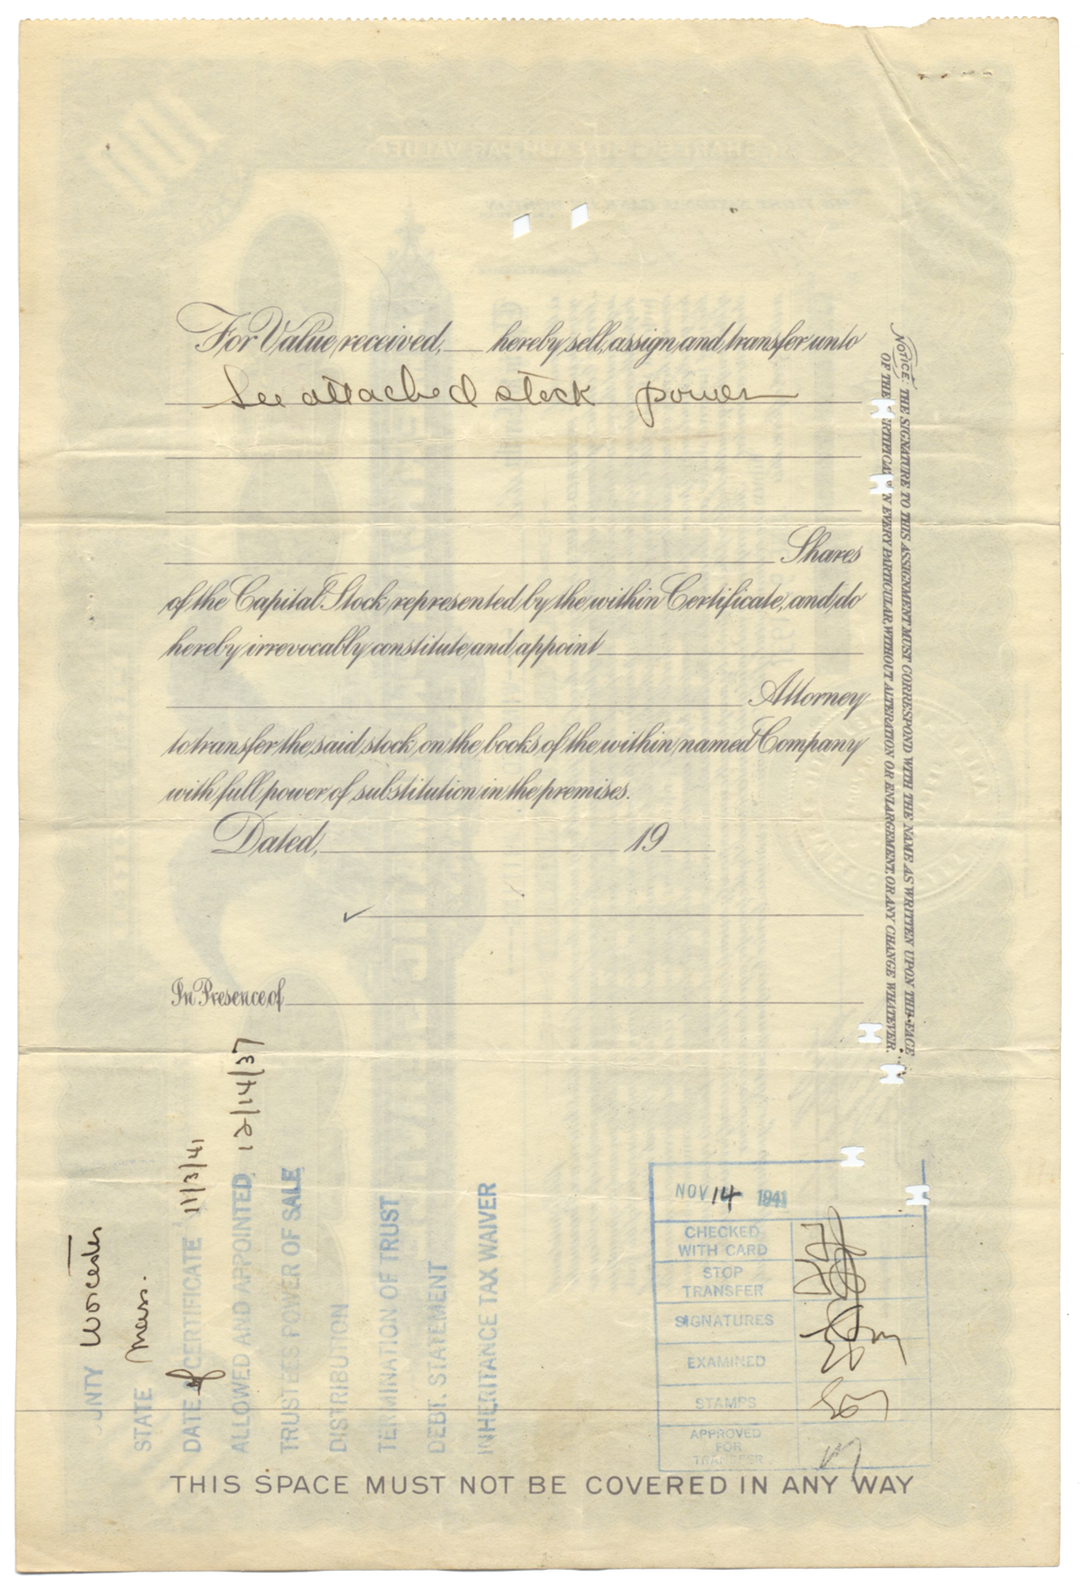 For Value received, ___ hereby sell, assign and transfer unto
See attached stock power
Shares
of the Capital Stock represented by the within Certificate, and do
hereby irrevocably constitute and appoint
Attorney
to transfer the said stock on the books of the within named Company
with full power of substitution in the premises.
Dated, 19
In Presence of
NOTICE. THE SIGNATURE TO THIS ASSIGNMENT MUST CORRESPOND WITH THE NAME AS WRITTEN UPON THE FACE
OF THE CERTIFICATE IN EVERY PARTICULAR WITHOUT ALTERATION OR ENLARGEMENT OR ANY CHANGE WHATEVER.
UNTY Worcester
STATE Mass.
DATE of CERTIFICATE 11/3/41
ALLOWED AND APPOINTED 12/14/37
TRUSTEES POWER OF SALE
DISTRIBUTION
TERMINATION OF TRUST
DEBT. STATEMENT
INHERITANCE TAX WAIVER
NOV 14 1941
CHECKED
WITH CARD
STOP
TRANSFER
SIGNATURES
EXAMINED
STAMPS
APPROVED
FOR
TRANSFER
THIS SPACE MUST NOT BE COVERED IN ANY WAY